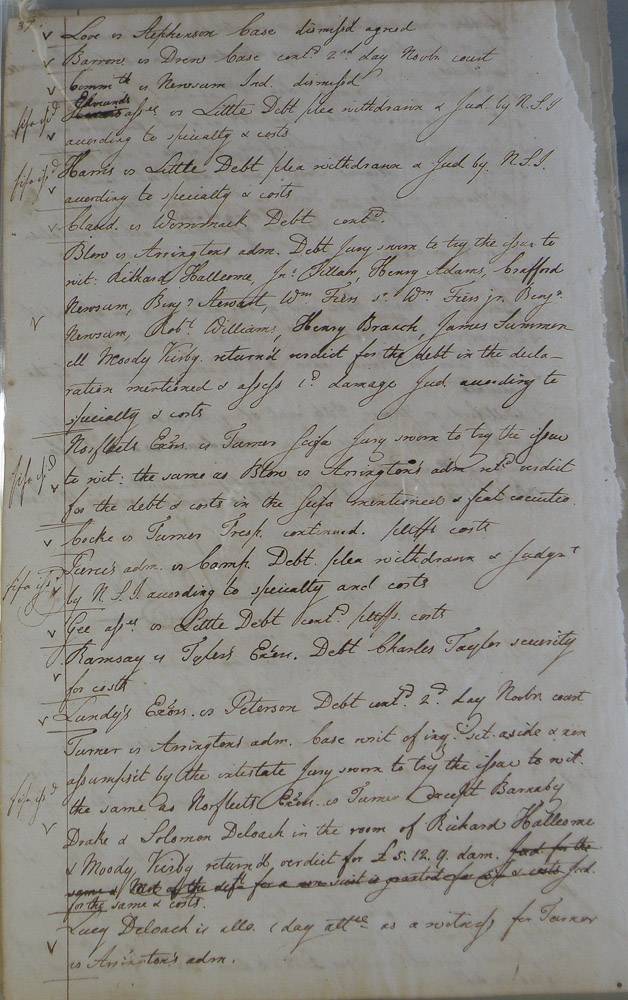 37.
Love vs Stephenson Case dismissd agreed
Barrow vs Drew Case contd. 2nd day Novbr. court
Commth vs Newsum Ind. dismissd
Edmunds
fifa issd Harris assee vs Little Debt plea withdrawn & Jud. by N.S.I
according to specialty & costs
fifa issd Harris vs Little Debt plea withdrawn & Jud by. N.S.I.
according to specialty & costs
Claud. vs Wommack Debt contd.
Blow vs Arringtons adm. Debt Jury sworn to try the issue to
wit: Richard Hallcome, Jno. Pillar, Henry Adams, Crafford
Newsum, Benja. Stewart, Wm Fiers sr. Wm Fiers jr. Benja.
Newsum, Robt. Williams, Henry Branch, James Summer
ell Moody Kirby. returnd verdict for the debt in the decla-
ration mentioned & assess 1d. damage Jud. according to
specialty & costs
fifa issd Norfleets Exors. vs Turner Scifa Jury sworn to try the issue
to wit: the same as Blow vs Arrington's adm retd. verdict
for the debt & costs in the Scifa mentioned &
Cocke vs Turner Tresp. continued. pltffs costs
fifa issd Pierce's adm. vs Camp. Debt. plea withdrawn & Judgmt
by N.S.I. according to specialty and costs
Gee assee vs Little Debt contd. pltffs. costs
Ramsay vs Tyler's Exors. Debt Charles Taylor security
for costs
Lundy's Exors. vs Peterson Debt contd. 2d. day Novbr. court
Turner vs Arringtons adm. Case writ of inqy. set aside & non
fifa issd assumpsit by the intestate Jury sworn to try the issue to wit.
the same as Norfleets Exors. vs Turner Except Barnaby
Drake & Solomon Deloach in the room of Richard Hallcome
& Moody Kirby returnd verdict for £5.12.9. dam. Jud for the
same & Mot of the deft. for a new suit is granted for & costs Jud.
for the same & costs.
Lucy Deloach is allo. 1 day attce as a witness for Turner
vs Arrington's adm.